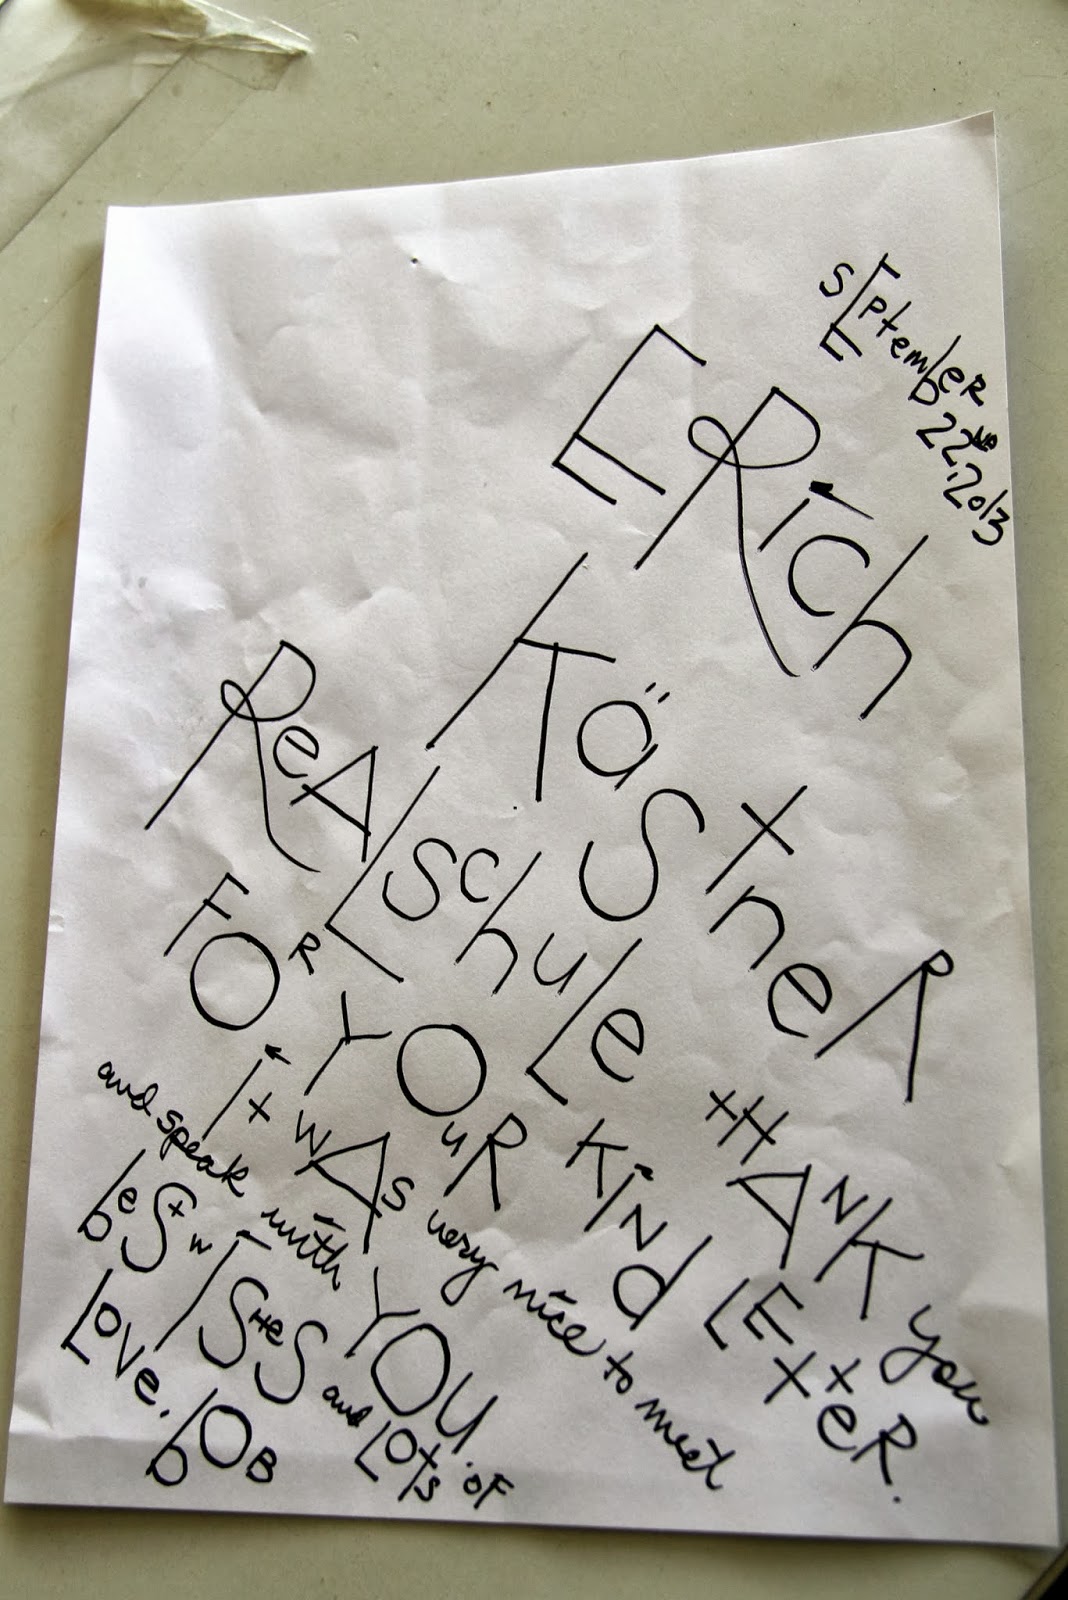 SEptembeR 22ND, 2013
ERich
KäStneR
ReALSchuLe tHANK you
FOR YOuR KiNd LEtteR.
It wAS very nice to meet
and speak with YOU.
beSt wISHeS and Lots oF
Love. bOB